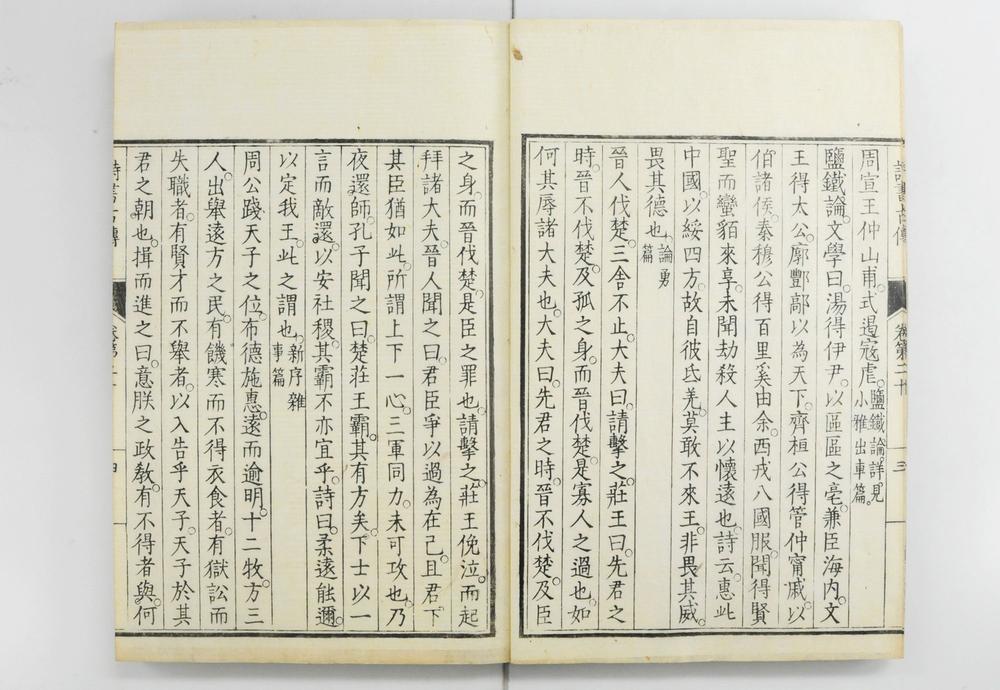 周宣王仲山甫式遏寇虐。鹽鐵論。詳見小雅出車篇。
鹽鐵論。文學曰。湯得伊尹。以區區之亳。兼臣海内。文
王得太公。廓酆鄗以為天下。齊桓公得管仲甯戚以
伯諸侯。秦穆公得百里奚由余。西戎八國服。聞得賢
聖而蠻貊來享。未聞劫殺人主以懷遠也。詩云。惠此
中國。以綏四方。故自彼氐羌。莫敢不來王。非畏其威。
畏其德也。論勇篇
晉人伐楚。三舍不止。大夫曰。請擊之。莊王曰。先君之
時。晉不伐楚。及孤之身。而晉伐楚。是寡人之過也。如
何其辱諸大夫也。大夫曰。先君之時。晉不伐楚。及臣
卷第二十 三
之身。而晉伐楚。是臣之罪也。請擊之。莊王俛泣。而起
拜諸大夫。晉人聞之曰。君臣爭以過為在己。且君下
其臣猶如此。所謂上下一心。三軍同力。未可攻也。乃
夜還師。孔子聞之曰。楚莊王霸。其有方矣。下士以一
言而敵還。以安社稷。其霸不亦宜乎。詩曰。柔遠能邇。
以定我王。此之謂也。新序雜事篇
周公踐天子之位。布德施惠。遠而逾明。十二牧。方三
人。出舉遠方之民。有饑寒而不得衣食者。有獄訟而
失職者。有賢才而不舉者。以入告乎天子。天子於其
君之朝也。揖而進之曰。意朕之政教。有不得者與。何